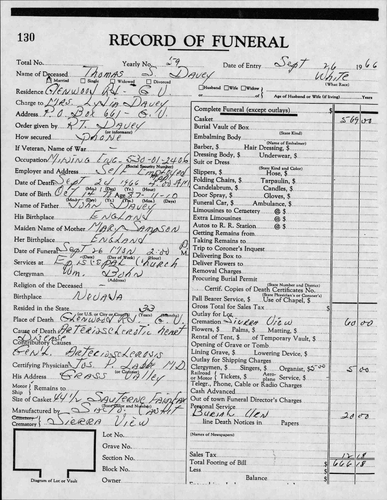 130
RECORD OF FUNERAL
Total No. Yearly No. 59 Date of Entry Sept 26 1966
Name of Deceased Thomas S Davey White
Married Single Widowed Divorced (What Race)
Residence Glenwood Rd - G V Husband Wife Widow of Age of Husband or Wife (if living) Years
Charge to Mrs. Lydia Davey
Address P.O. Box 661 - G. V.
Order given by R.T. Davey
How secured Phone
If Veteran, of War
Occupation Mining Eng. 530-01-2406
(Social Security Number)
Employer and Address Self Employed
Date of Death Sept 24 1966
Date of Birth Oct 14 1887
Name of Father John Davey
His Birthplace England
Maiden Name of Mother Mary Sampson
Her Birthplace England
Date of Funeral Sept 26 Mon 2:00 P M
Services at Episcopal Church
Clergyman Wm.
Religion of the Deceased
Birthplace Nevada
Resided in the State 33
Place of Death Glenwood Rd. G. V.
Cause of Death Arteriosclerotic Heart
Disease
Contributory Causes
Genl. Arteriosclerosis
Certifying Physician Jos. P. Ladd M.D.
His Address Grass Valley
Motor Remains to
Ship
Size of Casket
Manufactured by
Cemetery
Crematory Sierra View
Lot No.
Grave No.
Section No.
Block No.
Owner
Diagram of Lot or Vault
Complete Funeral (except outlays) $
Casket 569 00
Burial Vault of Box
(State Kind)
Embalming Body
(Name of Embalmer)
Barber, $ Hair Dressing, $
Dressing Body, $ Underwear, $
Suit or Dress
(State Kind)
Slippers, $ Hose, $
Folding Chairs, $ Tarpaulin, $
Candelabrum, $ Candles, $
Door Spray, $ Gloves, $
Funeral Car, $ Ambulance, $
Limousines to Cemetery @ $
Limousines @ $
Autos to R. R. Station @ $
Getting Remains from
Taking Remains to
Trip to Coroner's Inquest
Delivering Box to
Deliver Flowers to
Removal Charges
Procuring Burial Permit
(State Number and District)
Certif. Copies of Death Certificates No.
(State Physician's or Coroner's)
Pall Bearer Service, $ Use of Chapel, $
Gross Total for Sales Tax $
Outlay for Lot
Cremation Sierra View 60 00
Flowers, $ Palms, $ Matting, $
Rental of Tent, $ of Temporary Vault, $
Opening of Grave or Tomb
Lining Grave, $ Lowering Device, $
Outlay for Shipping Charges
Clergyman, $ Singers, $ Organist, $5.00 5 00
Railroad or Motor Tickets, $ Aeroplane Service, $
Telegr., Phone, Cable or Radio Charges
Cash Advanced
Out of town Funeral Director's Charges
Personal Service
Burial Urn 20 00
line Death Notices in Papers
(Names of Newspapers)
Sales Tax $ 12 18
Total Footing of Bill $ 666 18
Less
Balance $